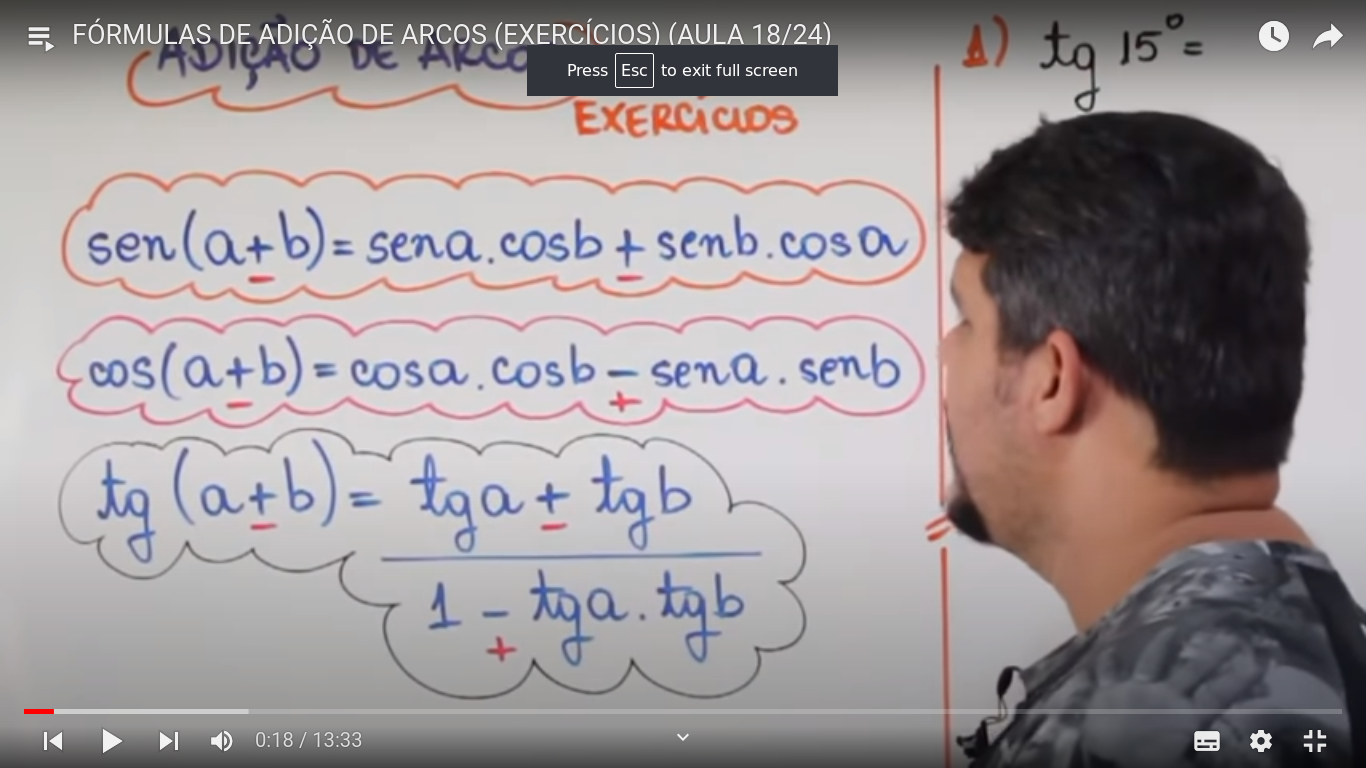 FÓRMULAS DE ADIÇÃO DE ARCOS (EXERCÍCIOS) (AULA 18/24)
ADIÇÃO DE ARCO
Press Esc to exit full screen
EXERCÍCIOS
1) tg 15° =
sen(a+b) = sena.cosb + senb.cosa
- -
cos(a+b) = cosa.cosb - sena.senb
- +
tg(a+b) = tga + tgb
- -
1 - tga.tgb
+
0:18 / 13:33